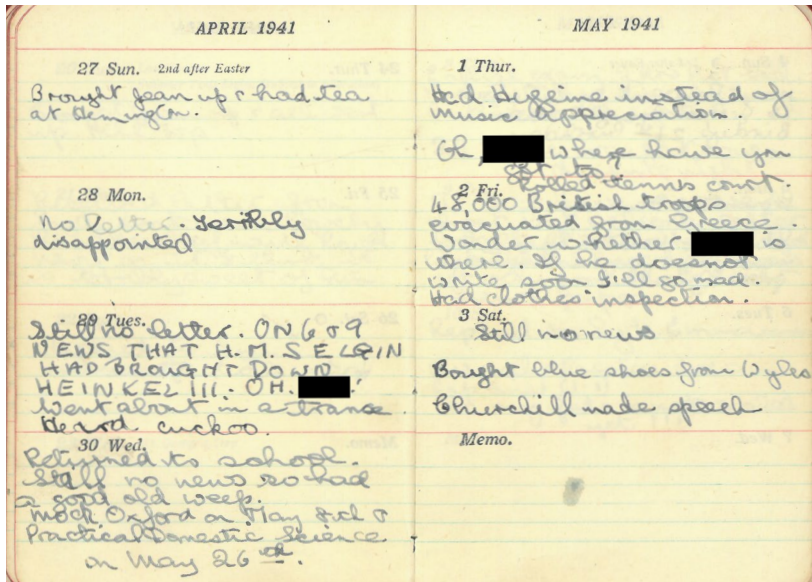 APRIL 1941
27 Sun. 2nd after Easter
Brought Jean up & had tea
at Hemington.
28 Mon.
No letter. Terribly
disappointed
29 Tues.
Still no letter. ON 6 & 9
NEWS THAT H.M.S ELGIN
HAD BROUGHT DOWN
HEINKEL III. OH !
Went about in a trance
Heard cuckoo.
30 Wed.
Returned to school.
Still no news so had
a good old weep.
Mock Oxford on May &
Practical Domestic Science
on May 26th.
MAY 1941
1 Thur.
Had Hygeine instead of
Music Appreciation.
Oh, where have you
got to.
Rolled tennis court.
2 Fri.
48,000 British troops
evacuated from Greece.
Wonder whether is
there. If he doesnot
write soon I'll go mad
Had clothes inspection.
3 Sat.
Still no news
Bought blue shoes from Wyles
Churchill made speech
Memo.